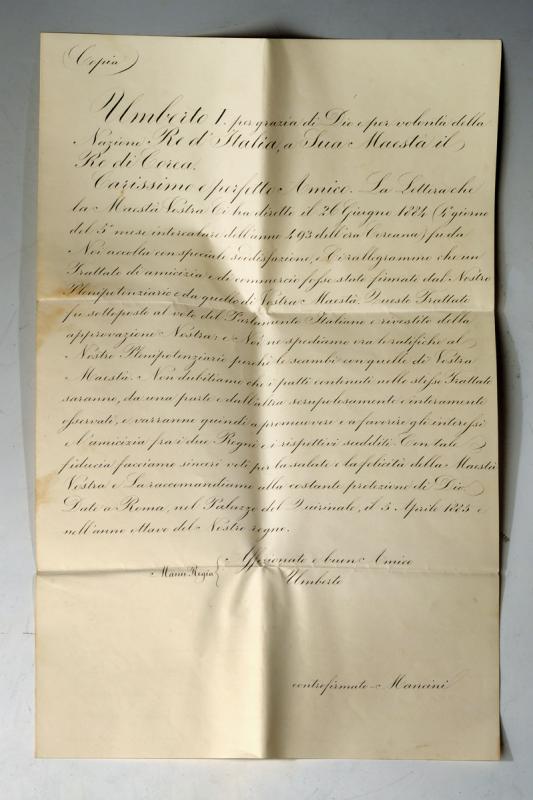 (Copia)
Umberto I. per grazia di Dio e per volontà della
Nazione Re d'Italia, a Sua Maestà il
Re di Corea.
Carissimo e perfetto Amico. La Lettera che
la Maestà Vostra Ci ha diretto il 26 Giugno 1884 (4° giorno
del 5° mese intercalare dell'anno 493 dell'êra Coreana) fu da
Noi accolta con speciale soddisfazione, e Ci rallegrammo che un
Trattato di amicizia e di commercio fosse stato firmato dal Nostro
Plenipotenziario e da quello di Vostra Maestà. Questo Trattato
fu sottoposto al voto del Parlamento Italiano e rivestito della
approvazione Nostra: e Noi ne spediamo ora le ratifiche al
Nostro Plenipotenziario perchè le scambi con quelle di Vostra
Maestà. Non dubitiamo che i patti contenuti nello stesso Trattato
saranno, da una parte e dall'altra scrupolosamente e interamente
osservati, e varranno quindi a promuovere e a favorire gli interessi
e l'amicizia fra i due Regni e i rispettivi sudditi. Con tale
fiducia facciamo sinceri voti per la salute e la felicità della Maestà
Vostra e La raccomandiamo alla costante protezione di Dio.
Dato a Roma, nel Palazzo del Quirinale, il 5 Aprile 1885 e
nell'anno ottavo del Nostro regno.
Affezionato e buon Amico
Manu Regia { Umberto
controfirmato - Mancini